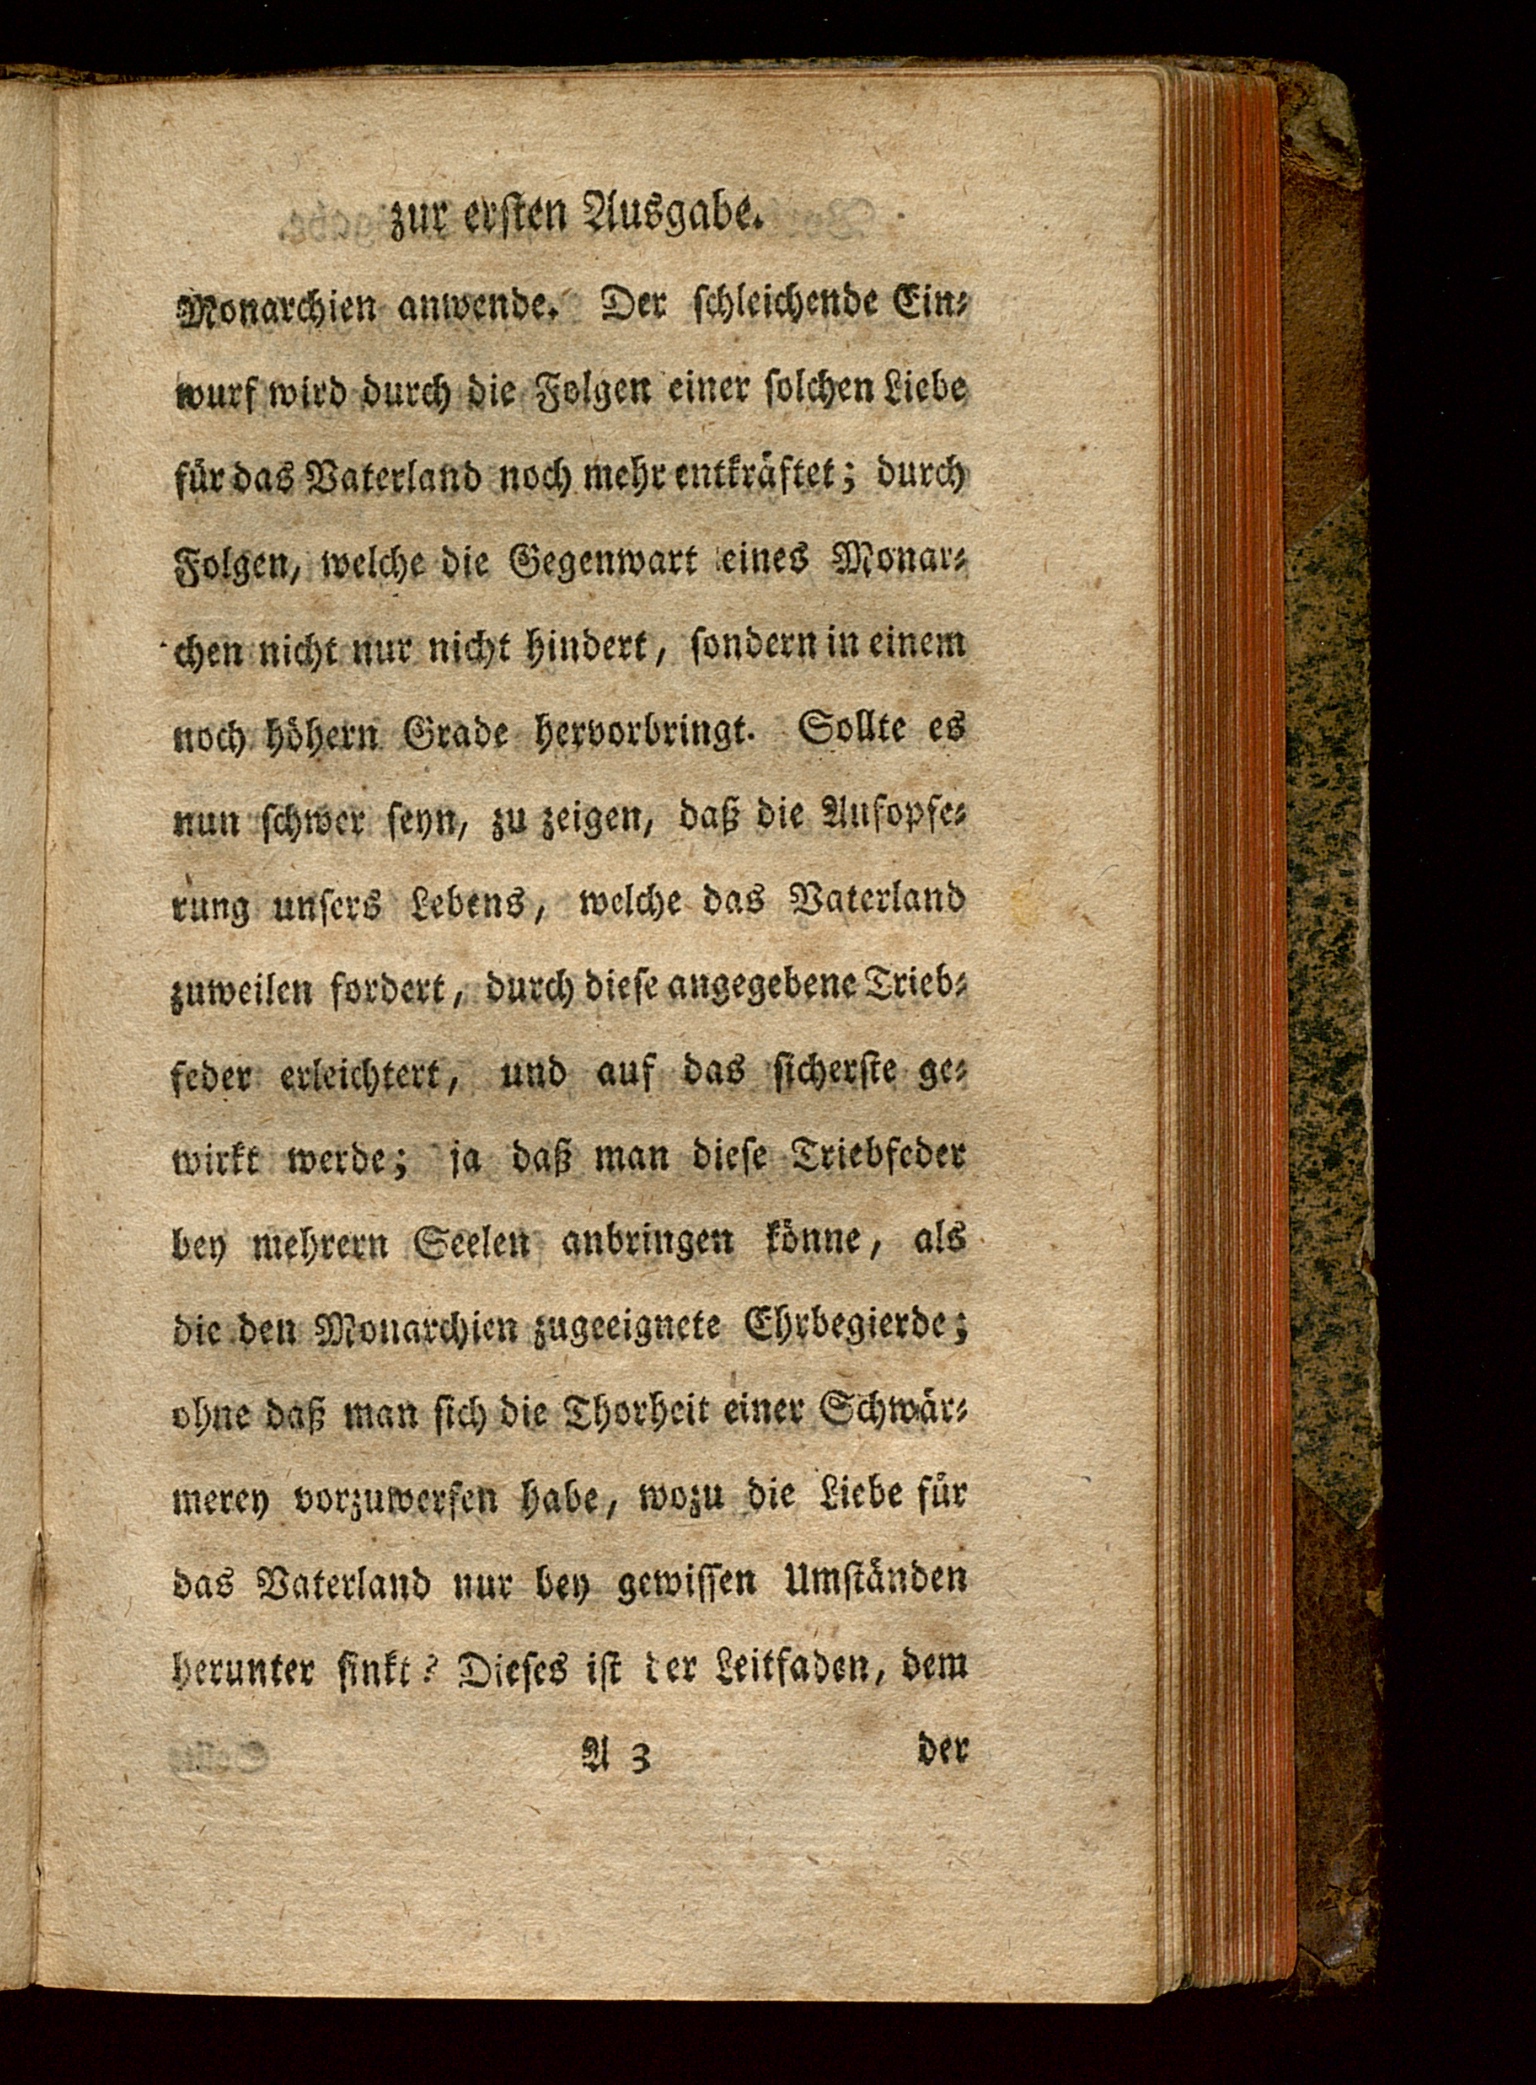 zur ersten Ausgabe.
Monarchien anwende. Der schleichende Ein⸗
wurf wird durch die Folgen einer solchen Liebe
für das Vaterland noch mehr entkräftet; durch
Folgen, welche die Gegenwart eines Monar⸗
chen nicht nur nicht hindert, sondern in einem
noch höhern Grade hervorbringt. Sollte es
nun schwer seyn, zu zeigen, daß die Aufopfe⸗
rung unsers Lebens, welche das Vaterland
zuweilen fordert, durch diese angegebene Trieb⸗
feder erleichtert, und auf das sicherste ge⸗
wirkt werde; ja daß man diese Triebfeder
bey mehrern Seelen anbringen könne, als
die den Monarchien zugeeignete Ehrbegierde;
ohne daß man sich die Thorheit einer Schwär⸗
merey vorzuwerfen habe, wozu die Liebe für
das Vaterland nur bey gewissen Umständen
herunter sinkt? Dieses ist der Leitfaden, dem
A 3 der